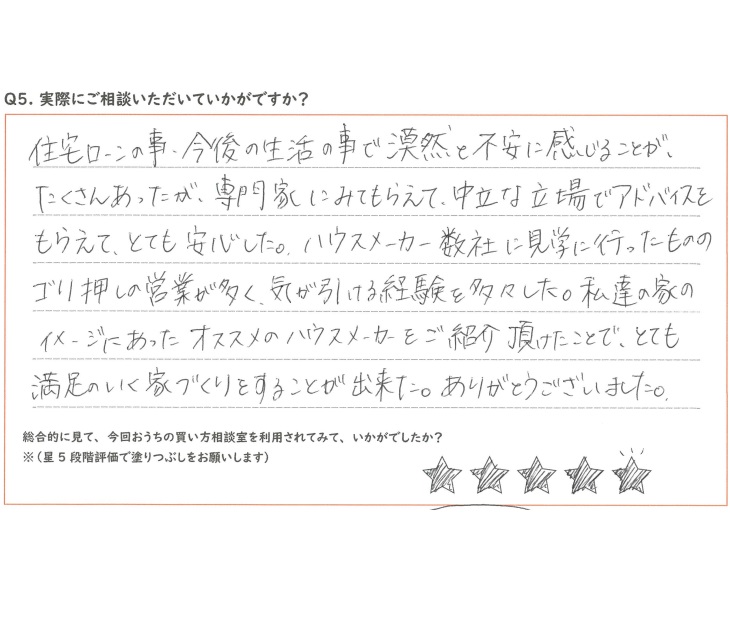 Q5. 実際にご相談いただいていかがですか？
住宅ローンの事、今後の生活の事で漠然と不安に感じることが、
たくさんあったが、専門家にみてもらえて、中立な立場でアドバイスを
もらえて、とても安心した。ハウスメーカー数社に見学に行ったものの
ゴリ押しの営業が多く、気が引ける経験を多々した。私達の家の
イメージにあったオススメのハウスメーカーをご紹介頂けたことで、とても
満足のいく家づくりをすることが出来た。ありがとうございました。
総合的に見て、今回おうちの買い方相談室を利用されてみて、いかがでしたか？
※（星５段階評価で塗りつぶしをお願いします）